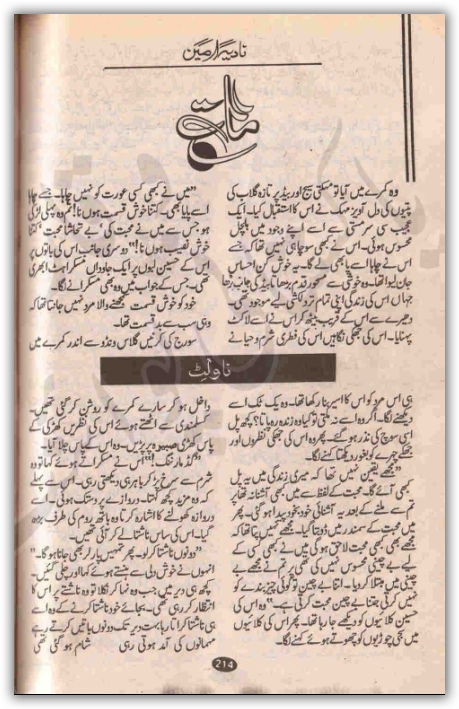 نادیہ امین
مات
وہ کمرے میں آیا تو مہکتی سیج اور بیڈ پر تازہ گلاب کی
پتیوں کی دل آویز مہک نے اس کا استقبال کیا۔ ایک
عجیب سی سرمستی سے اسے اپنے وجود میں ہلچل
محسوس ہوئی۔ اس نے کبھی سوچا ہی نہیں تھا کہ جسے
اس نے چاہا اسے پا بھی لے گا۔ یہ خوش کن احساس
جان لیوا تھا۔ وہ خوشی سے مخمور قدم بڑھاتا بیڈ کی جانب بڑھا
جہاں اس کی زندگی اپنی تمام تر دلکشی لیے موجود تھی۔
دھیرے سے اس کے قریب بیٹھ کر اس نے اسے لاکٹ
پہنایا۔ اس کی جھکی نگاہیں اس کی فطری شرم و حیا نے
ہی اس مرد کو اس کا اسیر بنا رکھا تھا۔ وہ یک ٹک اسے
دیکھنے لگا۔ اگر وہ اسے نہ ملتی تو کیا وہ زندہ رہ پاتا؟ کچھ پل
اسی سوچ کی نذر ہو گئے۔ پھر وہ اس کی جھکی نظروں اور
جھکے چہرے کو بغور دیکھتا کہنے لگا۔
"مجھے یقین نہیں تھا کہ میری زندگی میں یہ پل
کبھی آئے گا۔ محبت کے لفظ سے میں کبھی آشنا نہ تھا پر
تم سے ملنے کے بعد یہ آشنائی خود بخود پیدا ہو گئی۔ پھر
میں محبت کے سمندر میں ڈوبتا گیا۔ مجھے نہیں پتا تھا کہ
مجھے بھی کبھی محبت لاحق ہو گی میں نے کبھی کسی کے
لیے بے چینی محسوس نہیں کی تھی پر تم نے مجھے بے
چینی میں مبتلا کر دیا۔ اتنا بے چین تو کوئی چیز بندے کو
نہیں کرتی جتنا بے چین محبت کرتی ہے۔" وہ اس کی
حسین کلائیوں کو دیکھے جا رہا تھا۔ پھر اس کی کلائیوں
میں سجی چوڑیوں کو چھوتے ہوئے کہنے لگا۔
"میں نے کبھی کسی عورت کو نہیں چاہا۔ جسے چاہا
اسے پایا بھی۔ کتنا خوش قسمت ہوں نا! تم وہ پہلی لڑکی
ہو جس سے میں نے محبت کی' بے تحاشا محبت' کتنا
خوش نصیب ہوں نا!" دوسری جانب اس کی باتوں پر
اس کے حسین لبوں پر ایک جاوداں مسکراہٹ ابھری
تھی۔ جس کے جواب میں وہ بھی مسکرانے لگا۔
خود کو خوش قسمت سمجھنے والا مرد نہیں جانتا تھا کہ
وہی سب سے بد قسمت تھا۔
سورج کی کرنیں گلاس ونڈو سے اندر کمرے میں
ناولٹ
داخل ہو کر سارے کمرے کو روشن کر گئی تھیں۔
کسلمندی سے اٹھتے ہوئے اس کی نظریں کھڑکی کے
پاس کھڑی صبیحہ پر پڑیں۔ وہ اس کے پاس چلا آیا۔
"گڈ مارننگ!" اس نے مسکراتے ہوئے کہا تو وہ
شرم سے سرخ پڑ کر باہر ہی دیکھتی رہی۔ اس سے پہلے
کہ وہ مزید کچھ کہتا۔ دروازے پر دستک ہوئی۔ اسے
دروازہ کھولنے کا اشارہ کرتا وہ باتھ روم کی طرف بڑھ
گیا۔ اس کی ساس ناشتا لے کر آئی تھیں۔
"دونوں ناشتا کر لو۔ پھر تمہیں پارلر بھی جانا ہو گا۔"
انہوں نے خوش دلی سے ہنستے ہوئے کہا اور چلی گئیں۔
کچھ ہی دیر میں جب وہ نہا کر نکلا تو وہ ناشتے پر اس کا
انتظار کر رہی تھی۔ بجائے خود ناشتا کرنے کے وہ اسے
ہی ناشتا کراتا رہا بہت دیر تک دونوں باتیں کرتے رہے
مہمانوں کی آمد ہوتی رہی شام ہو گئی تھی
214